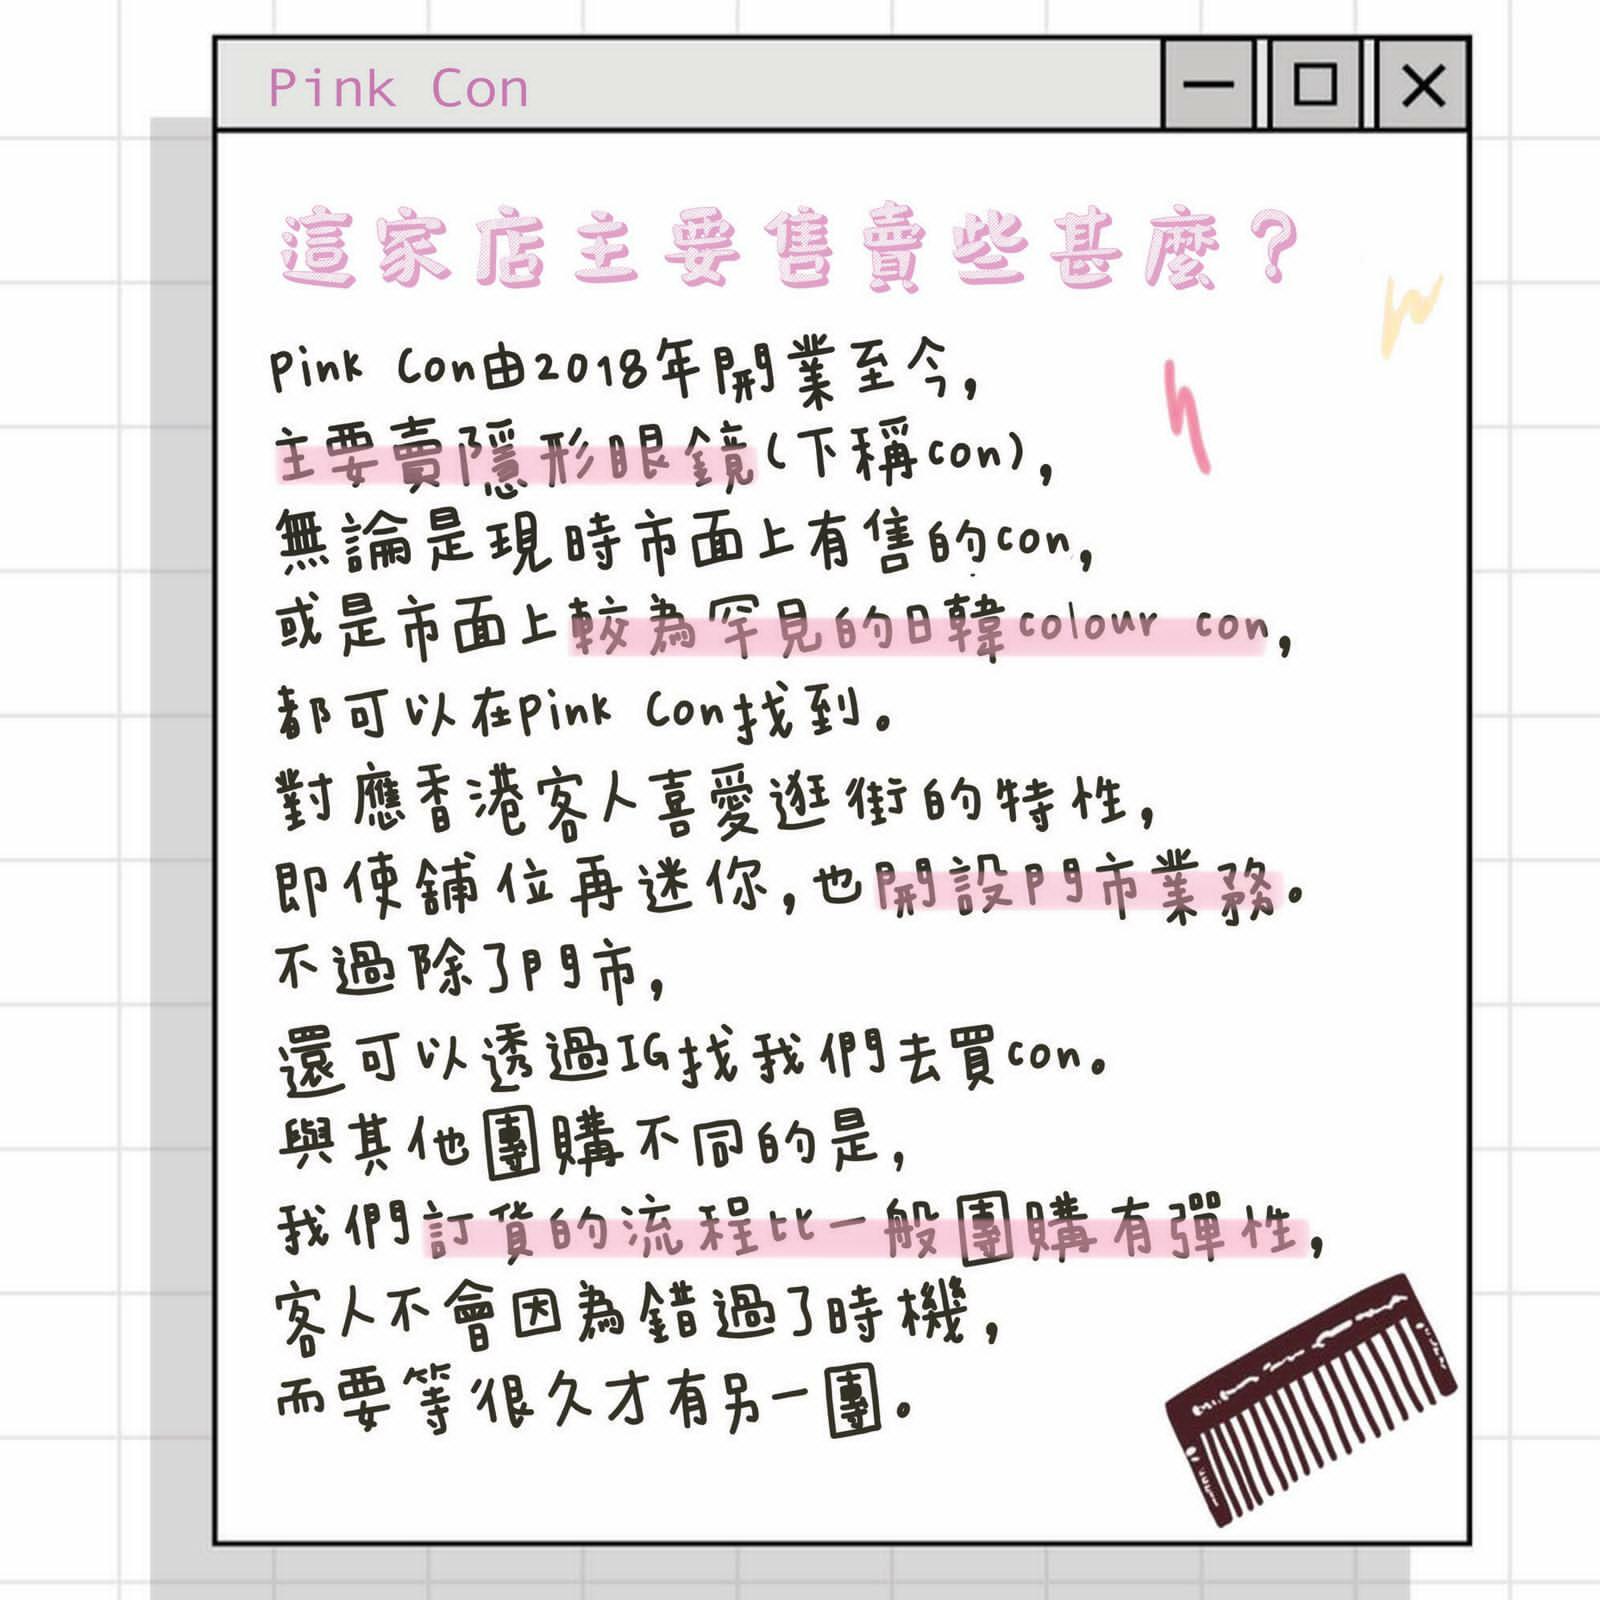 Pink Con
這家店主要售賣些甚麼？
Pink Con由2018年開業至今，
主要賣隱形眼鏡（下稱con），
無論是現時市面上有售的con，
或是市面上較為罕見的日韓colour con，
都可以在Pink Con找到。
對應香港客人喜愛逛街的特性，
即使舖位再迷你，也開設門市業務。
不過除了門市，
還可以透過IG找我們去買con。
與其他團購不同的是，
我們訂貨的流程比一般團購有彈性，
客人不會因為錯過了時機，
而要等很久才有另一團。